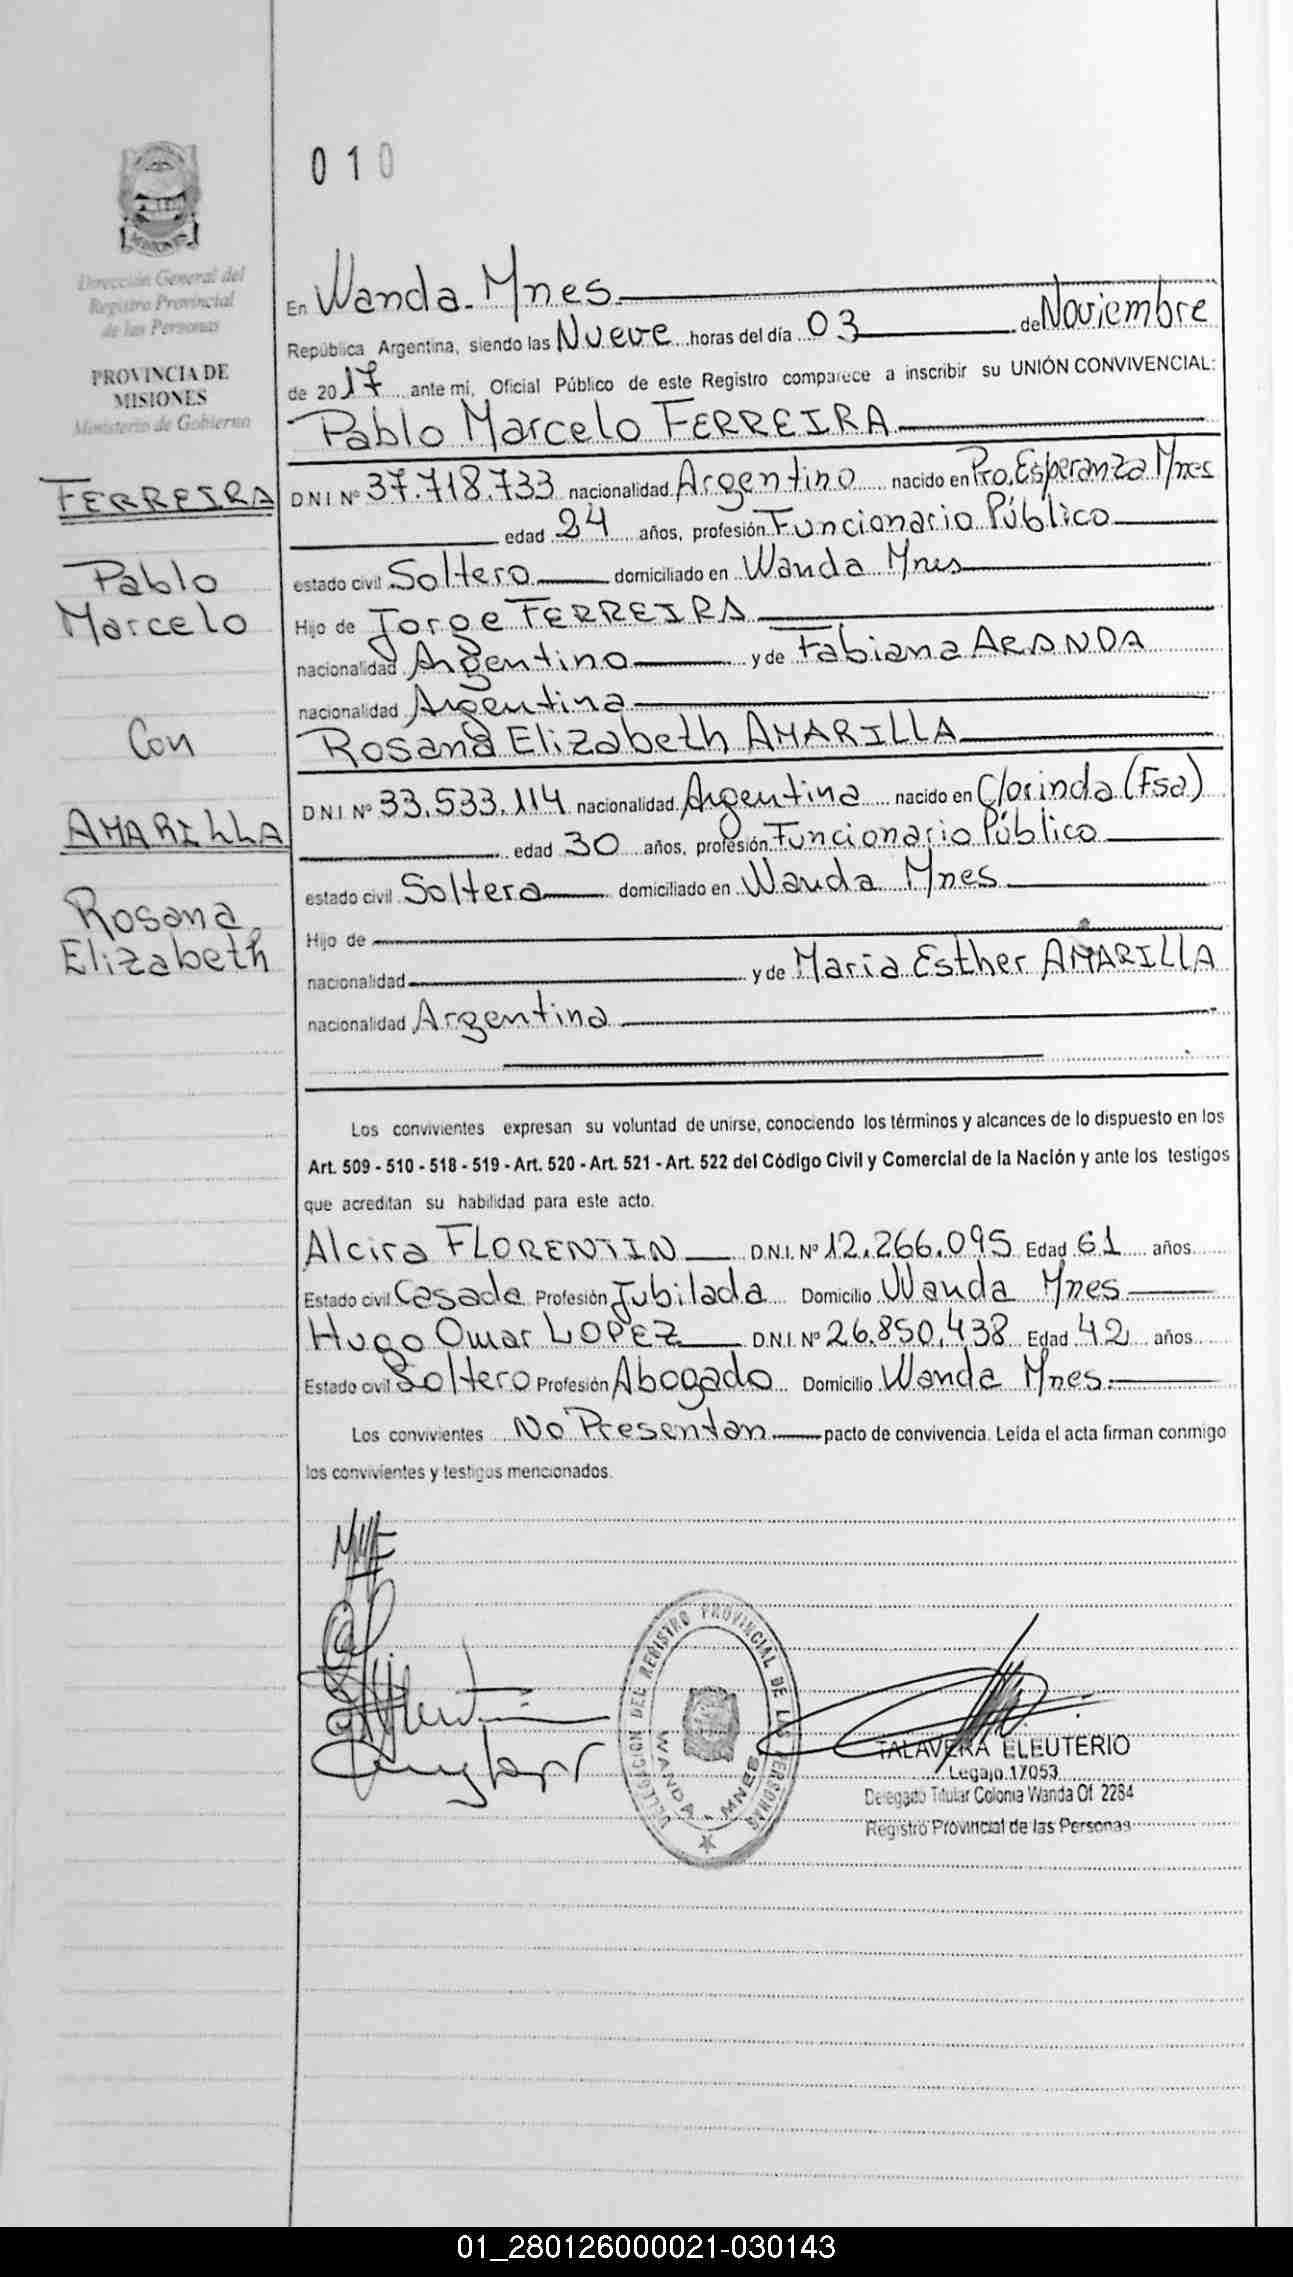 010
Dirección General del
Registro Provincial
de las Personas
PROVINCIA DE
MISIONES
Ministerio de Gobierno
FERREIRA
Pablo
Marcelo
Con
AMARILLA
Rosana
Elizabeth
En Wanda - Mnes.
República Argentina, siendo las Nueve horas del día 03 de Noviembre
de 2017 ante mí, Oficial Público de este Registro comparece a inscribir su UNIÓN CONVIVENCIAL:
Pablo Marcelo FERREIRA
D.N.I Nº 37.718.733 nacionalidad Argentino nacido en Pto. Esperanza Mnes
edad 24 años, profesión Funcionario Público
estado civil Soltero domiciliado en Wanda Mnes
Hijo de Jorge FERREIRA
nacionalidad Argentino y de Fabiana ARANDA
nacionalidad Argentina
Rosana Elizabeth AMARILLA
D.N.I Nº 33.533.114 nacionalidad Argentina nacido en Clorinda (Fsa)
edad 30 años, profesión Funcionario Público
estado civil Soltera domiciliado en Wanda Mnes
Hijo de
nacionalidad y de Maria Esther AMARILLA
nacionalidad Argentina
Los convivientes expresan su voluntad de unirse, conociendo los términos y alcances de lo dispuesto en los
Art. 509 - 510 - 518 - 519 - Art. 520 - Art. 521 - Art. 522 del Código Civil y Comercial de la Nación y ante los testigos
que acreditan su habilidad para este acto.
Alcira FLORENTIN D.N.I. Nº 12.266.095 Edad 61 años
Estado civil Casada Profesión Jubilada Domicilio Wanda Mnes
Hugo Omar LOPEZ D.N.I. Nº 26.850.438 Edad 42 años
Estado civil Soltero Profesión Abogado Domicilio Wanda Mnes.
Los convivientes No Presentan pacto de convivencia. Leída el acta firman conmigo
los convivientes y testigos mencionados.
DELEGACION DEL REGISTRO PROVINCIAL DE LAS PERSONAS
WANDA - MNES
TALAVERA ELEUTERIO
Legajo 17053
Delegado Titular Colonia Wanda Of. 2284
Registro Provincial de las Personas
01_280126000021-030143